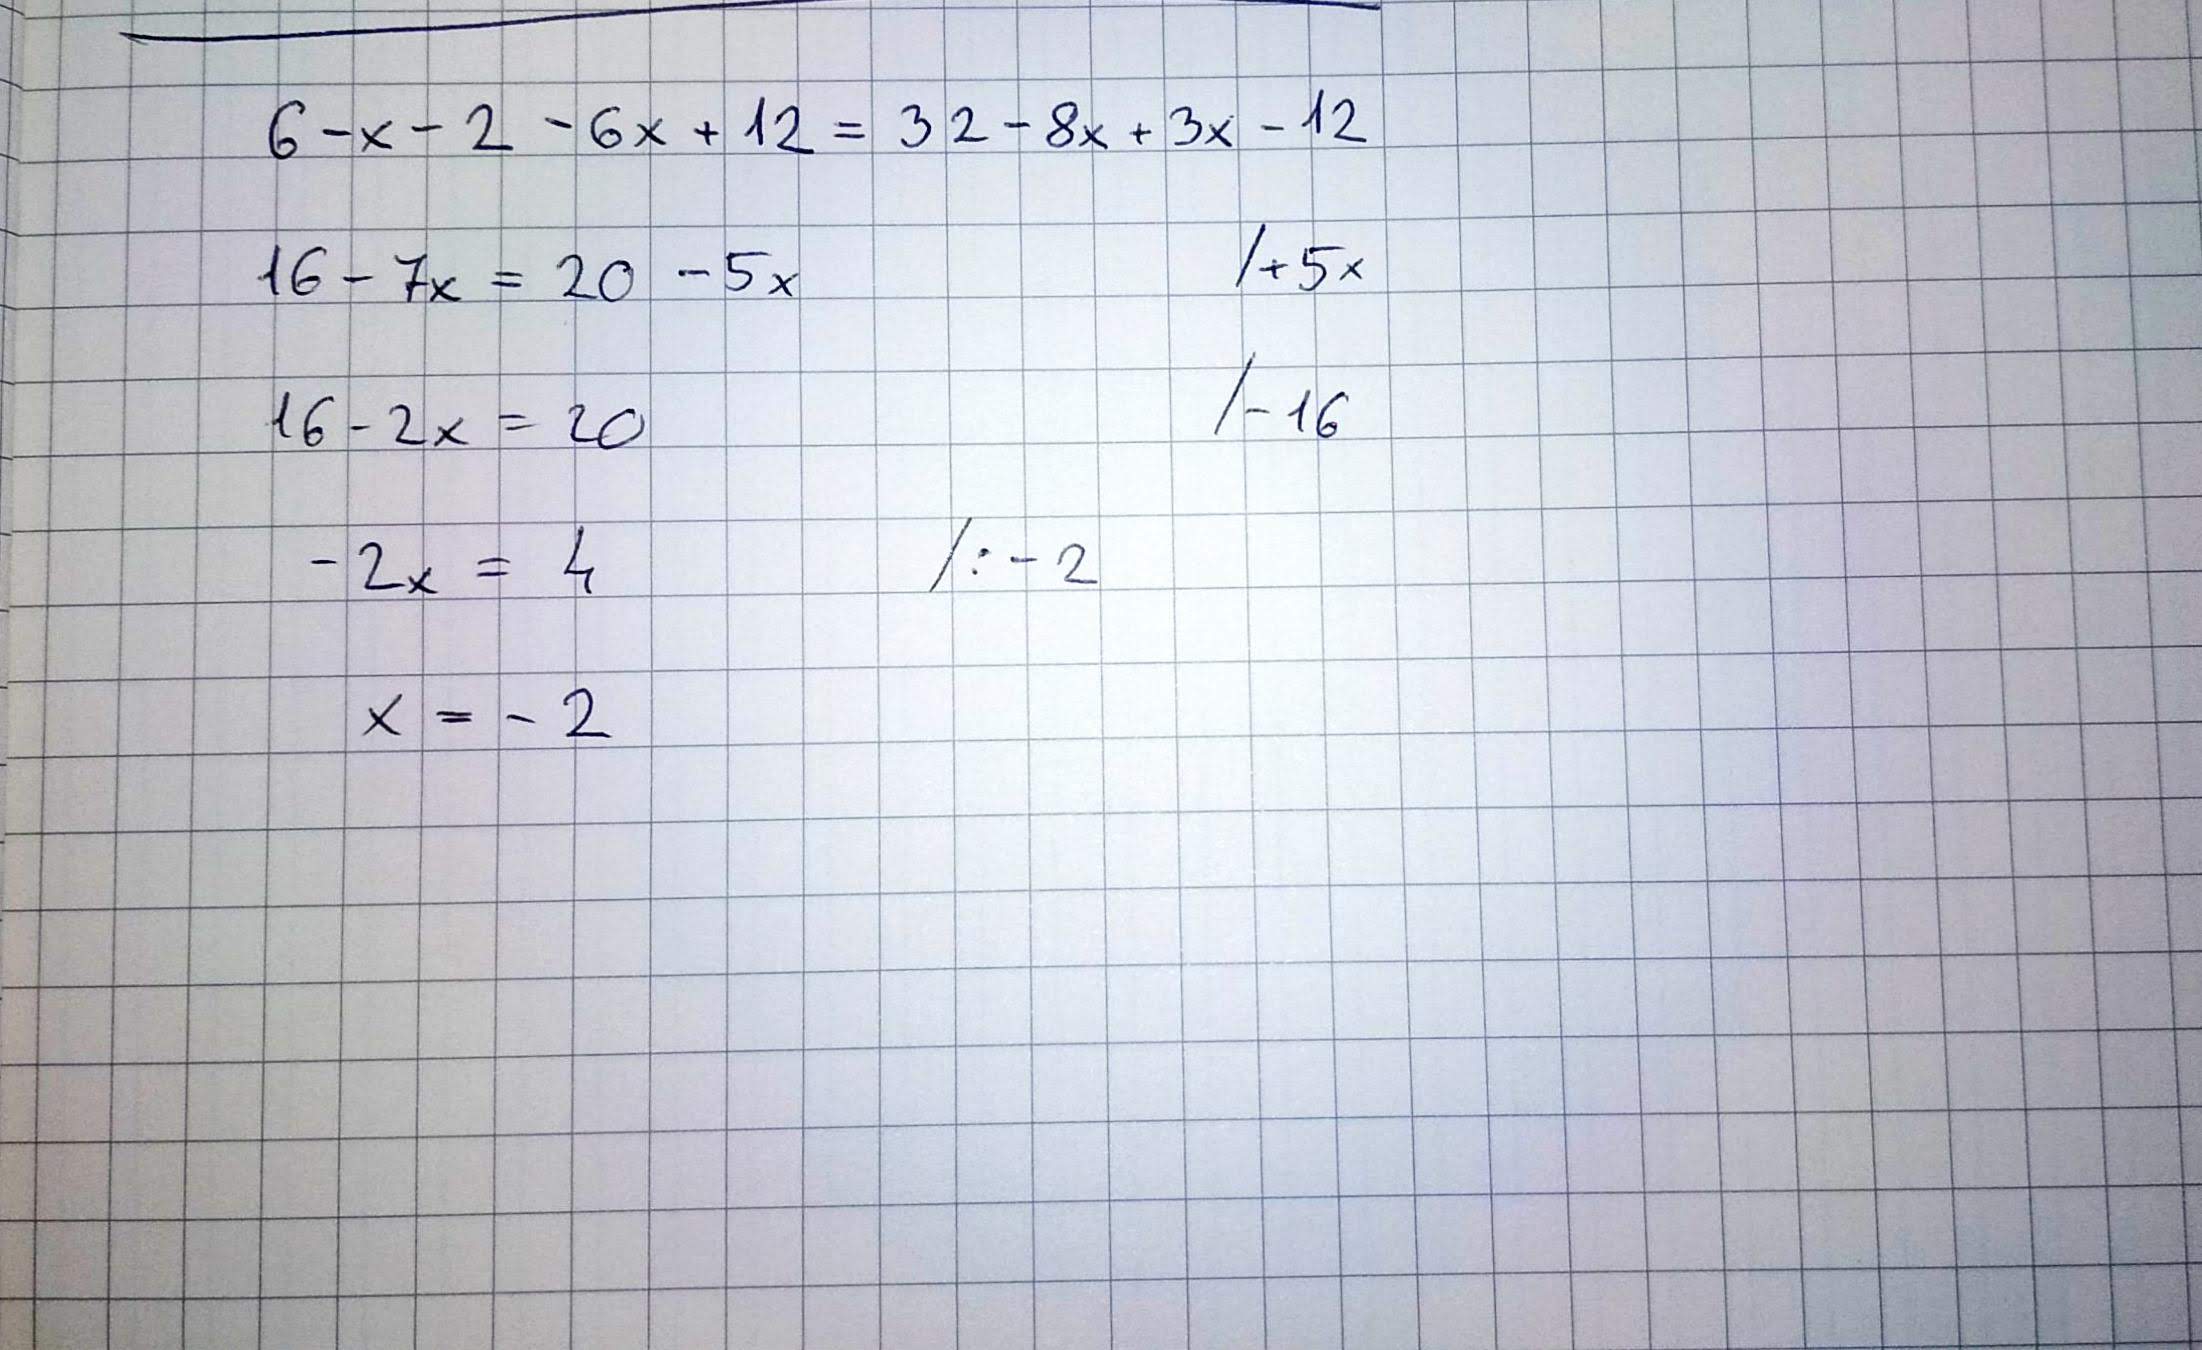 6 - x - 2 - 6x + 12 = 32 - 8x + 3x - 12
16 - 7x = 20 - 5x /+5x
16 - 2x = 20 /-16
-2x = 4 /:-2
x = -2